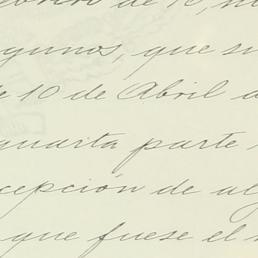 de 10,
gunos, que su
10 de Abril
quarta parte
cepción de
que fuese el